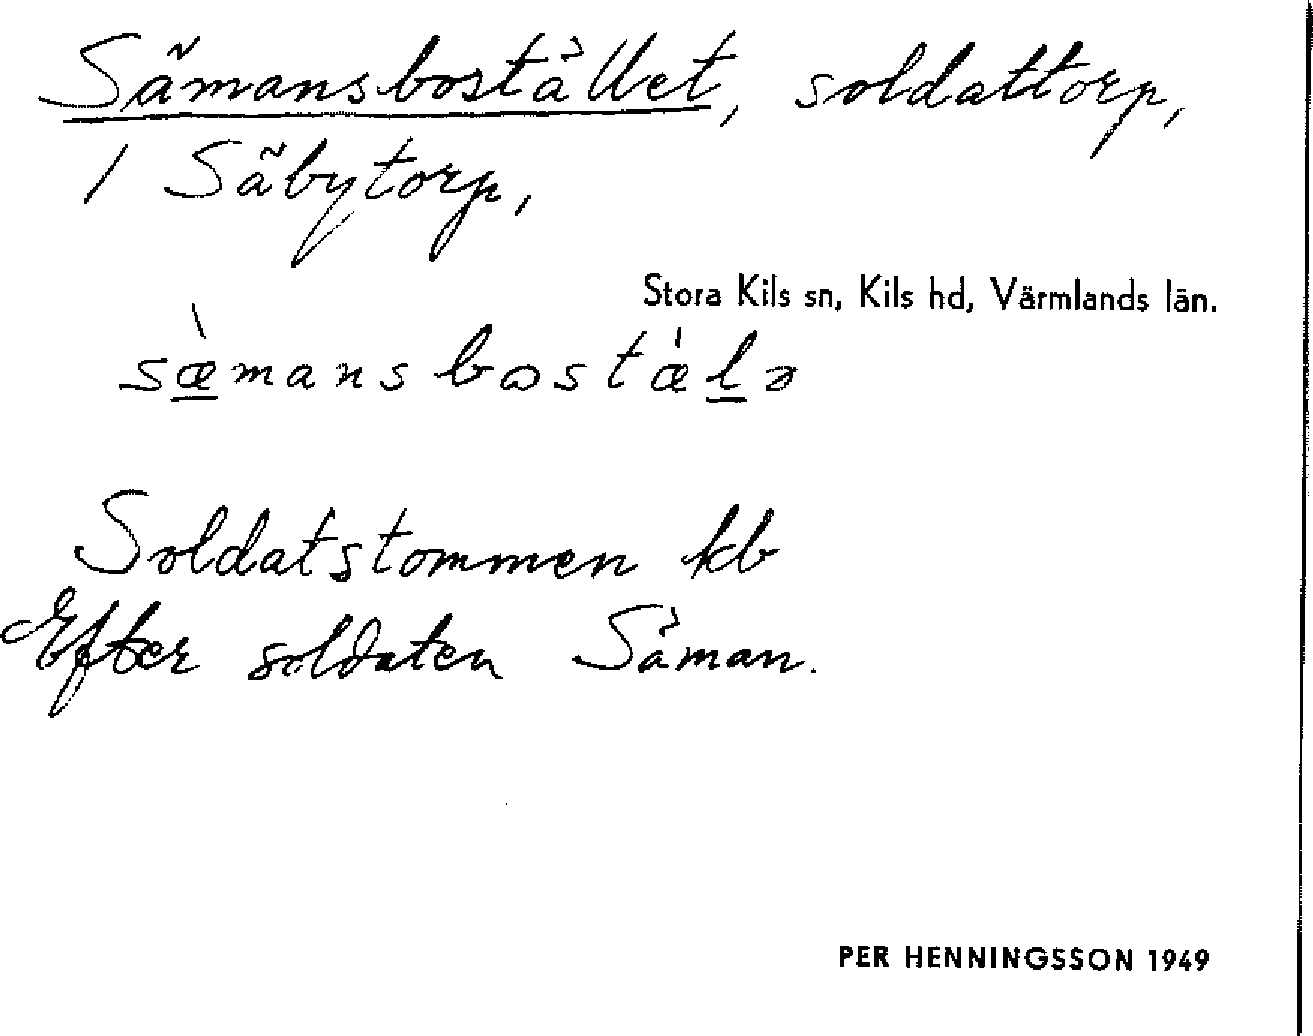 Sämansbostället, soldattorp,
/ Säbytorp,
Stora Kils sn, Kils hd, Värmlands län.
sæ̀mansbostæ̀lə
Soldatstommen kb
Efter soldaten Säman.
PER HENNINGSSON 1949